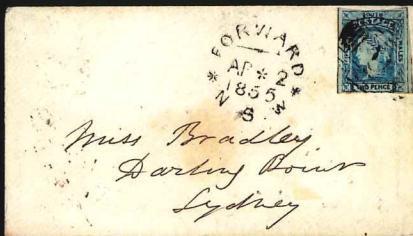 FORWARD
AP * 2
1855
N S W
POSTAGE
TWO PENCE
Miss Bradley
Darling Point
Sydney